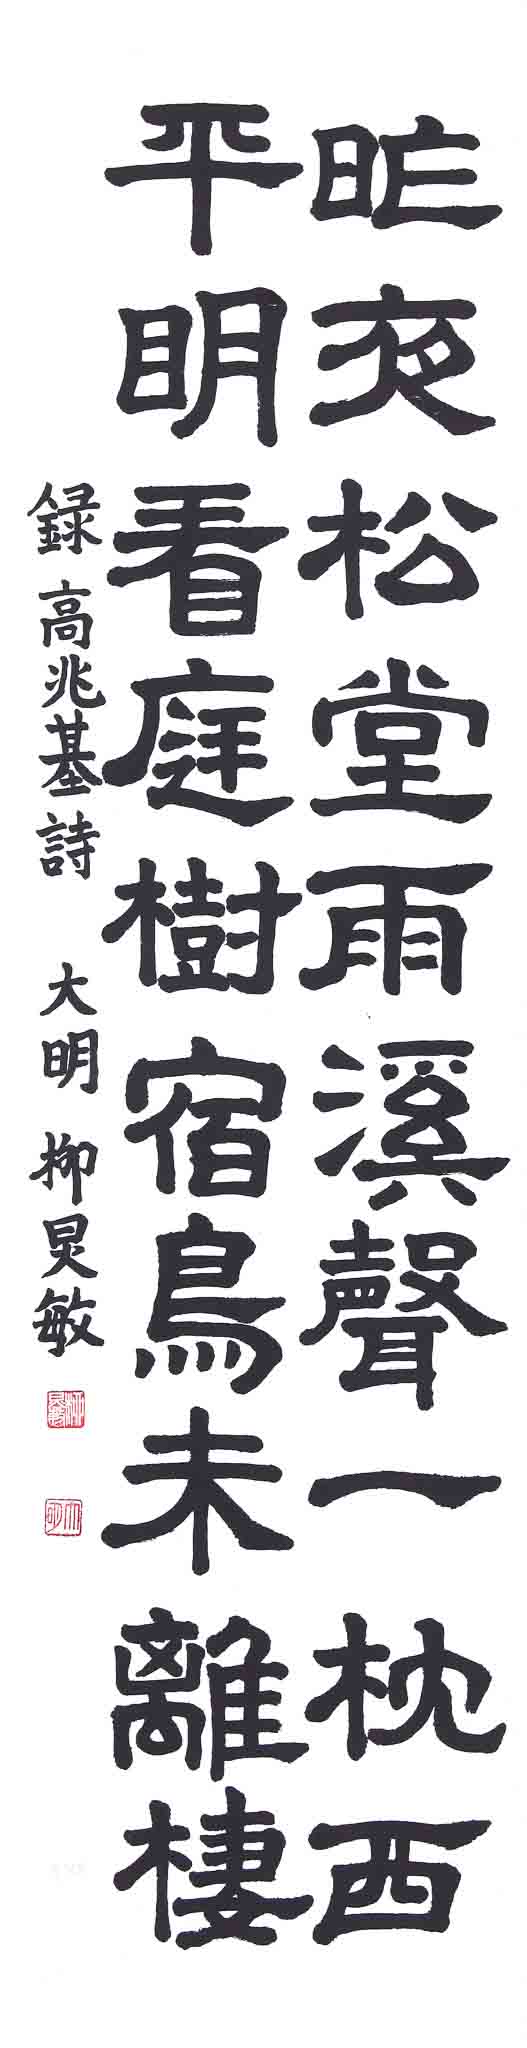 昨夜松堂雨溪聲一枕西
平明看庭樹宿鳥未離棲
録 高兆基詩 大明 柳炅敏